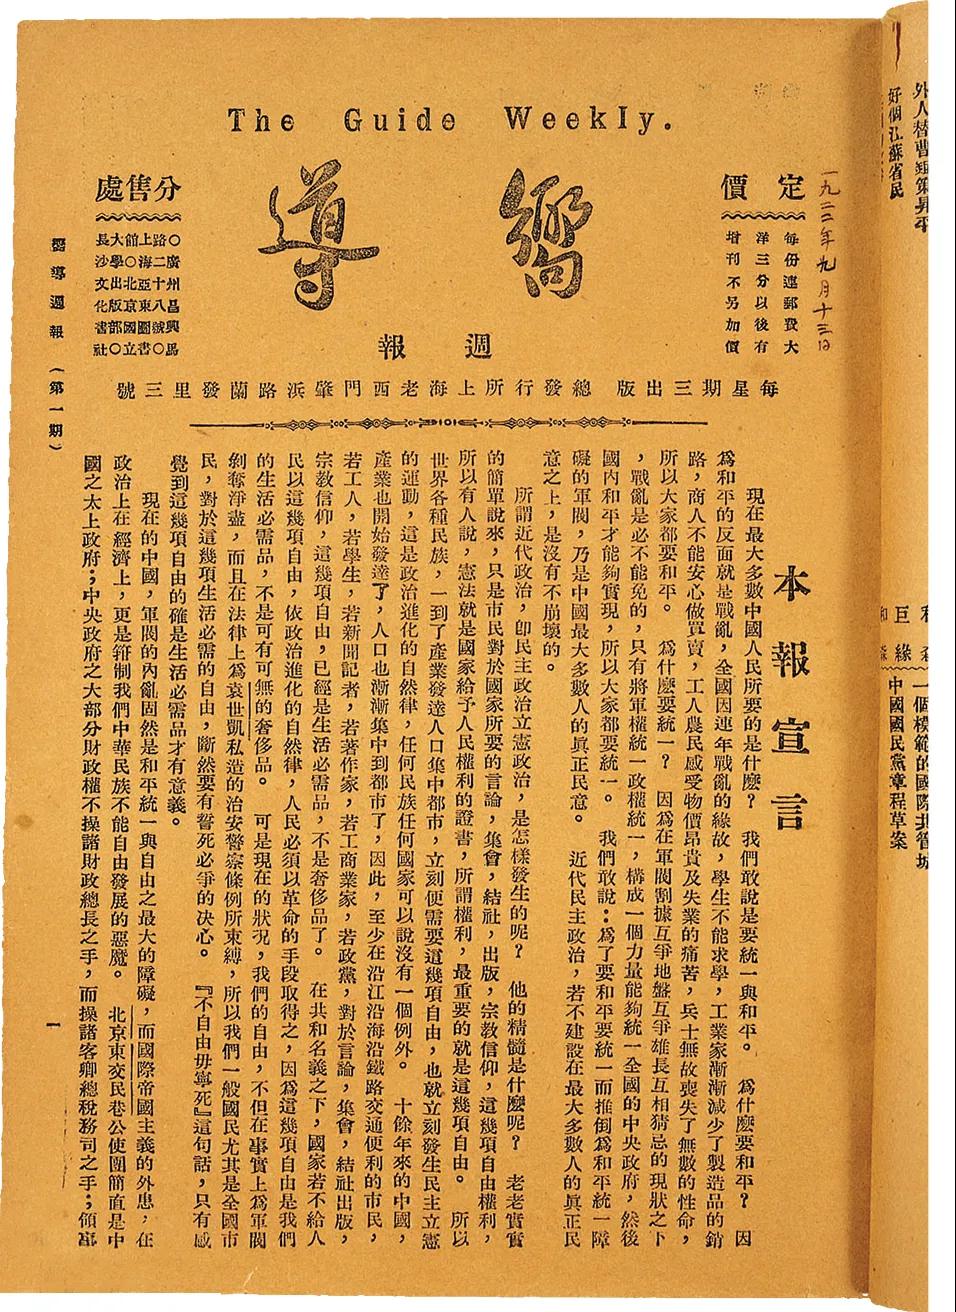 The Guide Weekly.
嚮導
週報
定價
每份連郵費大
洋三分以後有
增刊不另加價
一九二二年九月十三日
分售處
○廣州昌興馬
路二十八號○
上海亞東圖書
館○北京國立
大學出版部○
長沙文化書社
每星期三出版 總發行所上海老西門肇浜路蘭發里三號
嚮導週報（第一期）
本報宣言
現在最大多數中國人民所要的是什麽？ 我們敢說是要統一與和平。 爲什麽要和平？ 因
爲和平的反面就是戰亂，全國因連年戰亂的緣故，學生不能求學，工業家漸漸減少了製造品的銷
路，商人不能安心做買賣，工人農民感受物價昂貴及失業的痛苦，兵士無故喪失了無數的性命，
所以大家都要和平。 爲什麽要統一？ 因爲在軍閥割據互爭地盤互爭雄長互相猜忌的現狀之下
，戰亂是必不能免的，只有將軍權統一政權統一，構成一個力量能夠統一全國的中央政府，然後
國內和平才能夠實現，所以大家都要統一。 我們敢說：爲了要和平要統一而推倒爲和平統一障
礙的軍閥，乃是中國最大多數人的眞正民意。 近代民主政治，若不建設在最大多數人的眞正民
意之上，是沒有不崩壞的。
所謂近代政治，卽民主政治立憲政治，是怎樣發生的呢？ 他的精髓是什麽呢？ 老老實實
的簡單說來，只是市民對於國家所要的言論，集會，結社，出版，宗教信仰，這幾項自由權利，
所以有人說，憲法就是國家給予人民權利的證書，所謂權利，最重要的就是這幾項自由。 所以
世界各種民族，一到了產業發達人口集中都市，立刻便需要這幾項自由，也就立刻發生民主立憲
的運動，這是政治進化的自然律，任何民族任何國家可以說沒有一個例外。 十餘年來的中國，
產業也開始發達了，人口也漸漸集中到都市了，因此，至少在沿江沿海沿鐵路交通便利的市民，
若工人，若學生，若新聞記者，若著作家，若工商業家，若政黨，對於言論，集會，結社出版，
宗教信仰，這幾項自由，已經是生活必需品，不是奢侈品了。 在共和名義之下，國家若不給人
民以這幾項自由，依政治進化的自然律，人民必須以革命的手段取得之，因爲這幾項自由是我們
的生活必需品，不是可有可無的奢侈品。 可是現在的狀況，我們的自由，不但在事實上爲軍閥
剝奪淨盡，而且在法律上爲袁世凱私造的治安警察條例所束縛，所以我們一般國民尤其是全國市
民，對於這幾項生活必需的自由，斷然要有誓死必爭的決心。 『不自由毋寧死』這句話，只有感
覺到這幾項自由的確是生活必需品才有意義。
現在的中國，軍閥的內亂固然是和平統一與自由之最大的障礙，而國際帝國主義的外患，在
政治上在經濟上，更是箝制我們中華民族不能自由發展的惡魔。 北京東交民巷公使團簡直是中
國之太上政府；中央政府之大部分財政權不操諸財政總長之手，而操諸客卿總稅務司之手；領事
一
好個江蘇省民
一個模範的國際共管城
中國國民黨章程草案